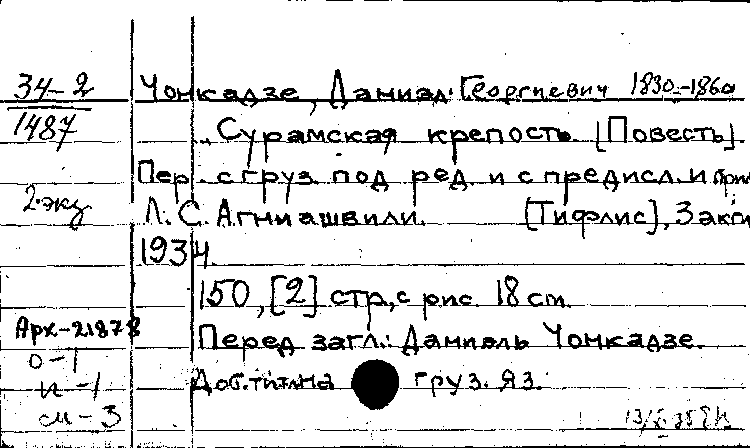 34-2
1487
2 экз
Чонкадзе, Даниэл Георгиевич 1830-1860
Сурамская крепость. [Повесть].
Пер. с груз. под ред. и с предисл. и прим
Л. С. Агниашвили. [Тифлис], Закги
1934.
150, [2] стр., с рис. 18 cm.
Перед загл.: Даниэль Чонкадзе.
Доб. тит. л на груз. яз.
Арх-21878
о-1
и-1
см-3